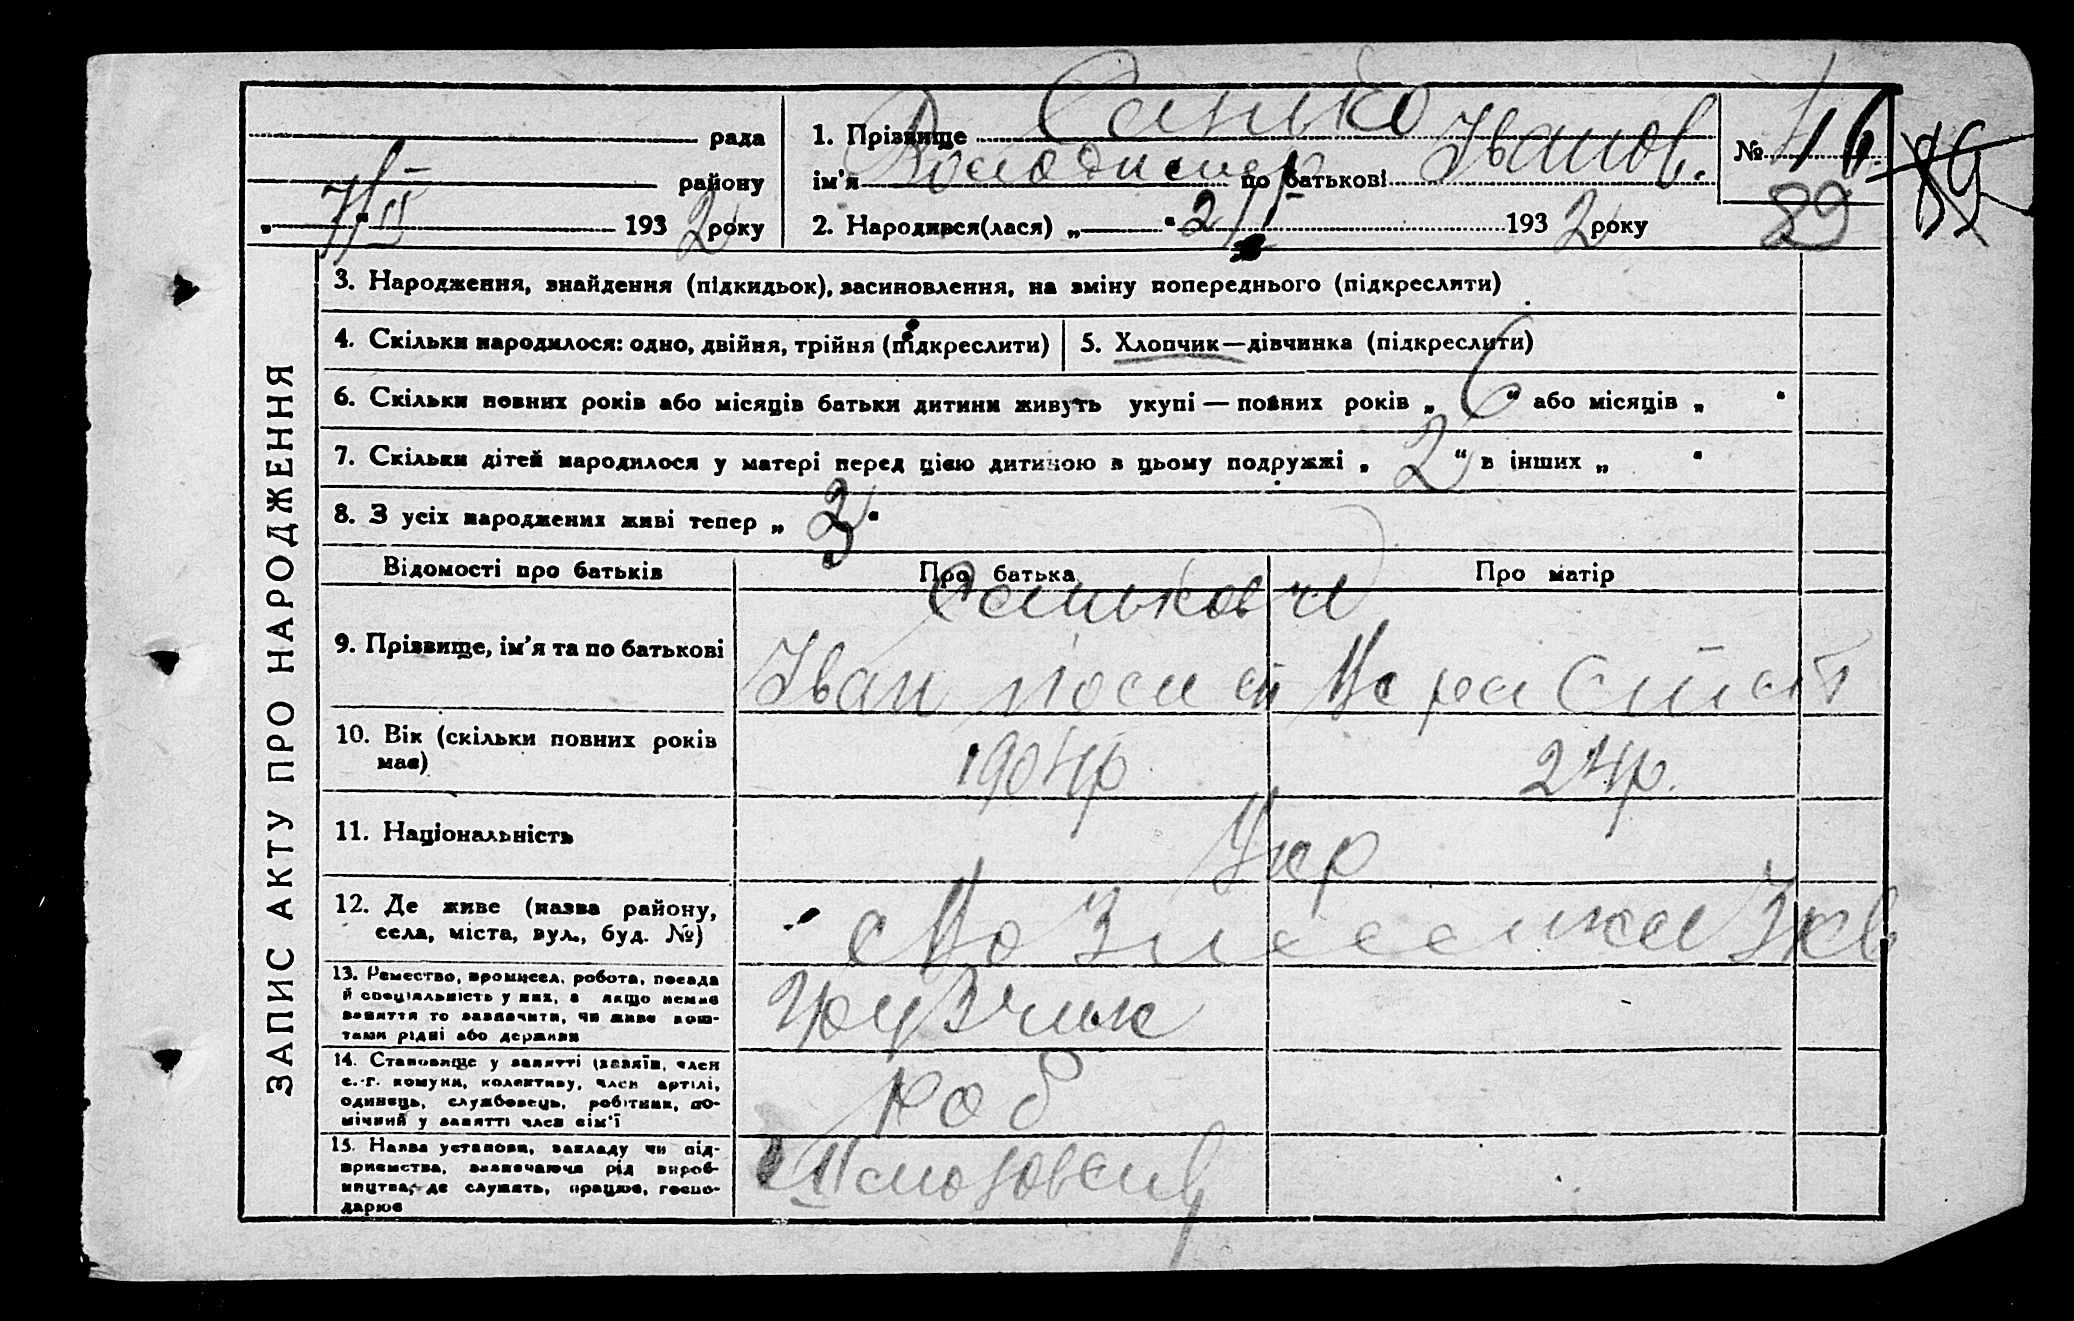 Санько
рада 1. Прізвище
Володимер Іванов. № 46
району ім'я по батькові
7/II 1932 року 2. Народився(лася) „ “ 2/I 1932 року 89 89
ЗАПИС АКТУ ПРО НАРОДЖЕННЯ
3. Народження, знайдення (підкидьок), засиновлення, на зміну попереднього (підкреслити)
4. Скільки народилося: одно, двійня, трійня (підкреслити) 5. Хлопчик—дівчинка (підкреслити)
6. Скільки повних років або місяців батьки дитини живуть укупі — повних років „ 6 “ або місяців „ “
7. Скільки дітей народилося у матері перед цією дитиною в цьому подружжі „ 2 “ в інших „ “
8. З усіх народжених живі тепер „ 3 “
Відомості про батьків Про батька Про матір
Санькови
9. Прізвище, ім'я та по батькові Іван Вера
10. Вік (скільки повних років 1904р 24р.
має)
11. Національність Укр
12. Де живе (назва району,
села, міста, вул., буд. №)
13. Ремество, промисел, робота, посада Грузчик
й спеціяльність у них, а якщо немає
заняття то зазначити, чи живе кош-
тами рідні або держави
14. Становище у занятті (хазяїн, член роб
с.-г. комуни, колективу, член артілі,
одинець, службовець, робітник, по-
мічний у занятті член сім'ї
15. Назва установи, закладу чи під-
приємства, зазначаючи рід вироб-
ництва, де служить, працює, госпо-
дарює